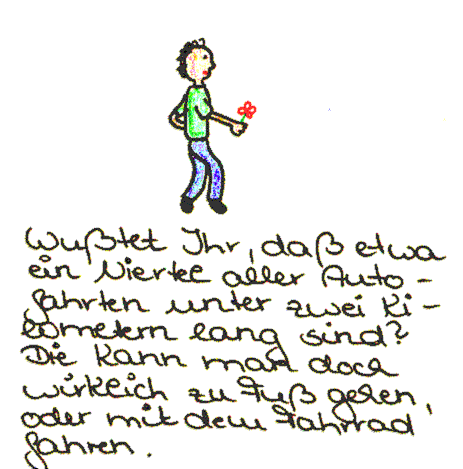 Wußtet Ihr, daß etwa
ein Viertel aller Auto-
fahrten unter zwei Ki-
lometern lang sind?
Die kann man doch
wirklich zu Fuß gehen,
oder mit dem Fahrrad
fahren.